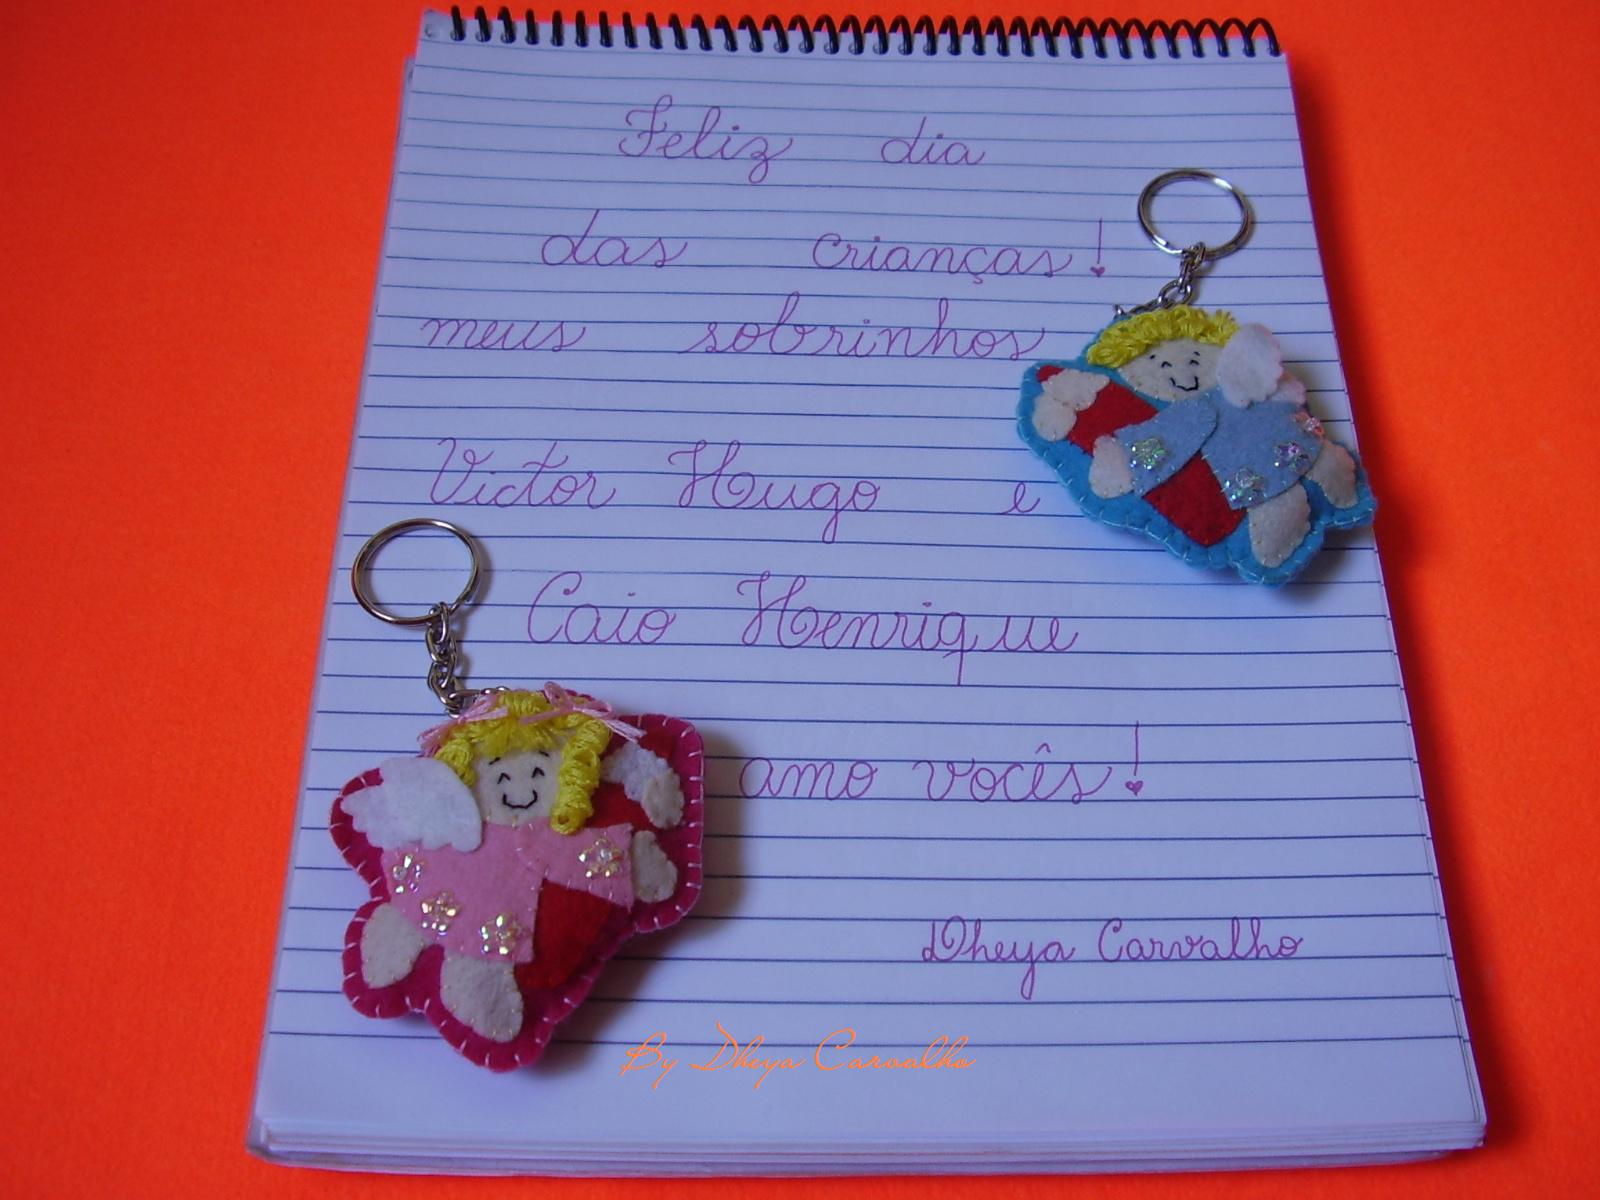 Feliz dia
das crianças!
meus sobrinhos
Victor Hugo e
Caio Henrique
amo vocês!
Dheya Carvalho
By Dheya Carvalho